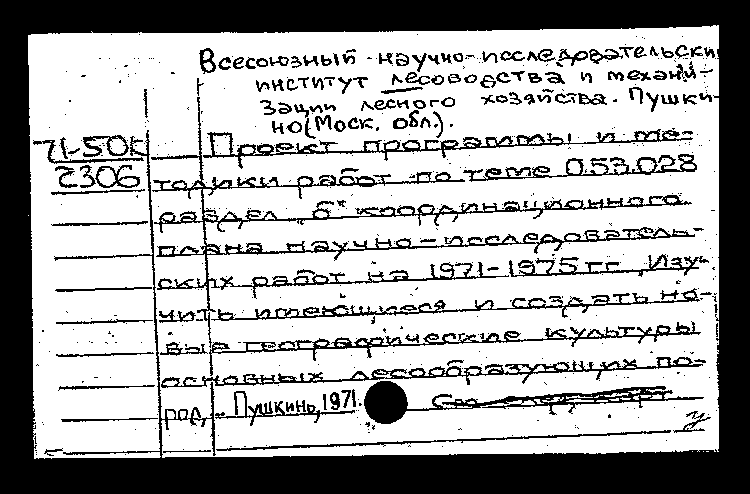 Всесоюзный научно-исследовательский
институт лесоводства и механи-
зации лесного хозяйства. Пушки-
но (Моск. обл.).
71-50к Проект программы и ме-
2306 тодики работ по теме 0.53.028
раздел "б" координационного
плана научно-исследователь-
ских работ на 1971-1975 гг "Изу-
чить имеющиеся и создать но-
вые географические культуры
основных лесообразующих по-
род. Пушкино, 1971.